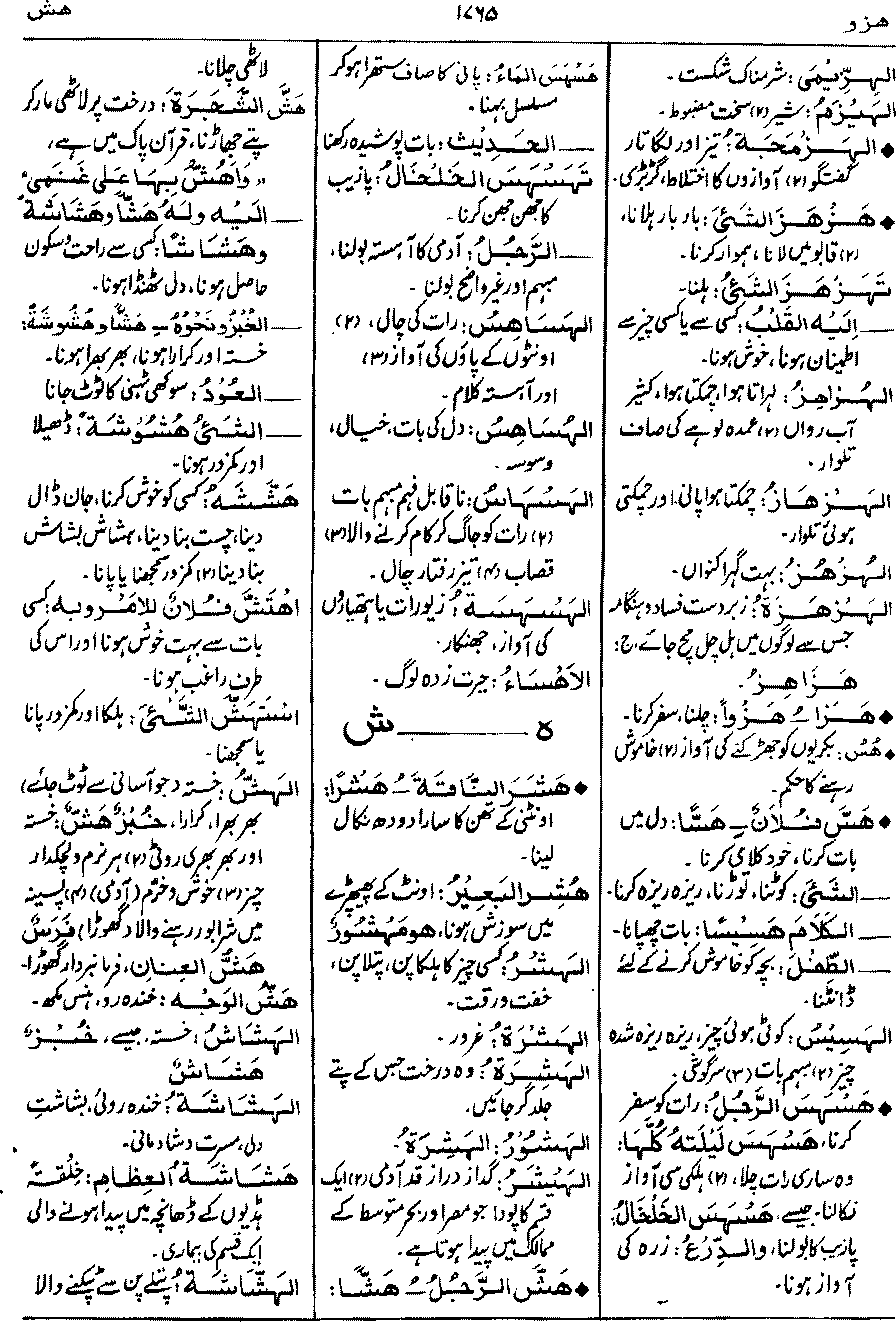 هزو
۱۷۶۵
هش
الهِزِّيمَى: شرمناک شکست۔
الهَيْزَمُ: شیر (۲) سخت مضبوط۔
♦ الهَزْمَجَةُ: تیز اور لگاتار
گفتگو (۲) آوازوں کا اختلاط، گڑبڑی۔
♦ هَزْهَزَ الشَّيْءَ: بار بار ہلانا،
(۲) قابو میں لانا، ہموار کرنا۔
تَهَزْهَزَ الشَّيْءُ: ہلنا۔
— إِلَيْهِ القَلْبُ: کسی سے یا کسی چیز سے
اطمینان ہونا، خوش ہونا۔
الهُزَاهِزُ: لہراتا ہوا، چمکتا ہوا، کثیر
آب رواں (۲) عمدہ لوہے کی صاف
تلوار۔
الهَزْهَازُ: چمکتا ہوا پانی اور چمکتی
ہوئی تلوار۔
الهُزْهُزُ: بہت گہرا کنواں۔
الهَزْهَزَةُ: زبردست فساد و ہنگامہ
جس سے لوگوں میں ہل چل مچ جائے، ج:
هَزَاهِزُ۔
♦ هَزَا ـُ هَزْواً: چلنا، سفر کرنا۔
♦ هُسْ: بکریوں کو جھڑکنے کی آواز (۲) خاموش
رہنے کا حکم۔
♦ هَسَّ فُلَانٌ ـِ هَسًّا: دل میں
بات کرنا، خود کلامی کرنا۔
— الشَّيْءَ: کوٹنا، توڑنا، ریزہ ریزہ کرنا۔
— الكَلَامَ هَسِيْسًا: بات چھپانا۔
— الطِّفْلَ: بچہ کو خاموش کرنے کے لئے
ڈانٹنا۔
الهَسِيْسُ: کوٹی ہوئی چیز، ریزہ ریزہ شدہ
چیز (۲) مبہم بات (۳) سرگوشی۔
♦ هَسْهَسَ الرَّجُلُ: رات کو سفر
کرنا، هَسْهَسَ لَيْلَتَهُ كُلَّهَا:
وہ ساری رات چلا، (۲) ہلکی سی آواز
نکالنا۔ جیسے، هَسْهَسَ الخَلْخَالُ:
پازیب کا بولنا، والدِّرْعُ: زرہ کی
آواز ہونا۔
هَسْهَسَ المَاءُ: پانی کا صاف ستھرا ہو کر
مسلسل بہنا۔
— الحَدِيْثَ: بات پوشیدہ رکھنا
تَهَسْهَسَ الخَلْخَالُ: پازیب
کا جھن جھن کرنا۔
— الرَّجُلُ: آدمی کا آہستہ بولنا،
مبہم اور غیر واضح بولنا۔
الهَسَاهِسُ: رات کی چال، (۲)
اونٹوں کے پاؤں کی آواز (۳)
اور آہستہ کلام۔
الهُسَاهِسُ: دل کی بات، خیال،
وسوسہ۔
الهَسْهَاسُ: ناقابل فہم مبہم بات
(۲) رات کو جاگ کر کام کرنے والا (۳)
قصاب (۴) تیز رفتار چال۔
الهَسْهَسَةُ: زیورات یا ہتھیاروں
کی آواز، جھنکار۔
الأَهْسَاءُ: حیرت زدہ لوگ۔
ہ ——— ش
♦ هَشَرَ النَّاقَةَ ـُ هَشْرًا:
اونٹنی کے تھن کا سارا دودھ نکال
لینا۔
هُشِرَ البَعِيْرُ: اونٹ کے پھیپھڑے
میں سوزش ہونا، هو مَهْشُوْرٌ
الهَشْرُ: کسی چیز کا ہلکا پن، پتلا پن،
خفت و رقت۔
الهَشْرَةُ: غرور۔
الهَشِرَةُ: وہ درخت جس کے پتے
جلد گر جائیں۔
الهَشُوْرُ: الهَشِرَةُ۔
الهَيْشَرُ: گداز دراز قد آدمی (۲) ایک
قسم کا پودا جو مصر اور بحر متوسط کے
ممالک میں پیدا ہوتا ہے۔
♦ هَشَّ الرَّجُلُ ـُ هَشًّا:
لاٹھی چلانا۔
هَشَّ الشَّجَرَةَ: درخت پر لاٹھی مار کر
پتے جھاڑنا، قرآن پاک میں ہے،
"وَأَهُشُّ بِهَا عَلى غَنَمِي"
— إِلَيْهِ وله هَشًّا وهَشَاشَةً
وهَشَاشًا: کسی سے راحت و سکون
حاصل ہونا، دل ٹھنڈا ہونا۔
— الخُبْزُ ونَحْوُهُ ـِ هَشًّا وهُشُوْشَةً:
خستہ اور کرارا ہونا، بھر بھرا ہونا۔
— العُوْدُ: سوکھی ٹہنی کا ٹوٹ جانا
— الشَّيْءُ هُشُوْشَةً: ڈھیلا
اور کمزور ہونا۔
هَشَّشَهُ: کسی کو خوش کرنا، جان ڈال
دینا، چست بنا دینا، ہشاش بشاش
بنا دینا (۲) کمزور سمجھنا یا پانا۔
اهْتَشَّ فُلَانٌ للأَمْرِ وبه: کسی
بات سے بہت خوش ہونا اور اس کی
طرف راغب ہونا۔
اسْتَهَشَّ الشَّيْءَ: ہلکا اور کمزور پانا
یا سمجھنا۔
الهَشُّ: خستہ (جو آسانی سے ٹوٹ جائے)
بھر بھرا، کرارا، خُبْزٌ هَشٌّ: خستہ
اور بھر بھری روٹی (۲) ہر نرم و لچکدار
چیز (۳) خوش و خرّم (آدمی) (۴) پسینہ
میں شرابور رہنے والا (گھوڑا) فَرَسٌ
هَشُّ العِنَانِ، فرمانبردار گھوڑا۔
هَشُّ الوَجْهِ: خندہ رو، ہنس مکھ۔
الهَشَاشُ: خستہ، جیسے، خُبْزٌ
هَشَاشٌ
الهَشَاشَةُ: خندہ روئی، بشاشتِ
دلی، مسرت و شادمانی۔
هَشَاشَةُ العِظَامِ: خِلقتہً
ہڈیوں کے ڈھانچہ میں پیدا ہونے والی
ایک قسم کی بیماری۔
الهَشَّاشَةُ: پتلے پن سے ٹپکنے والا